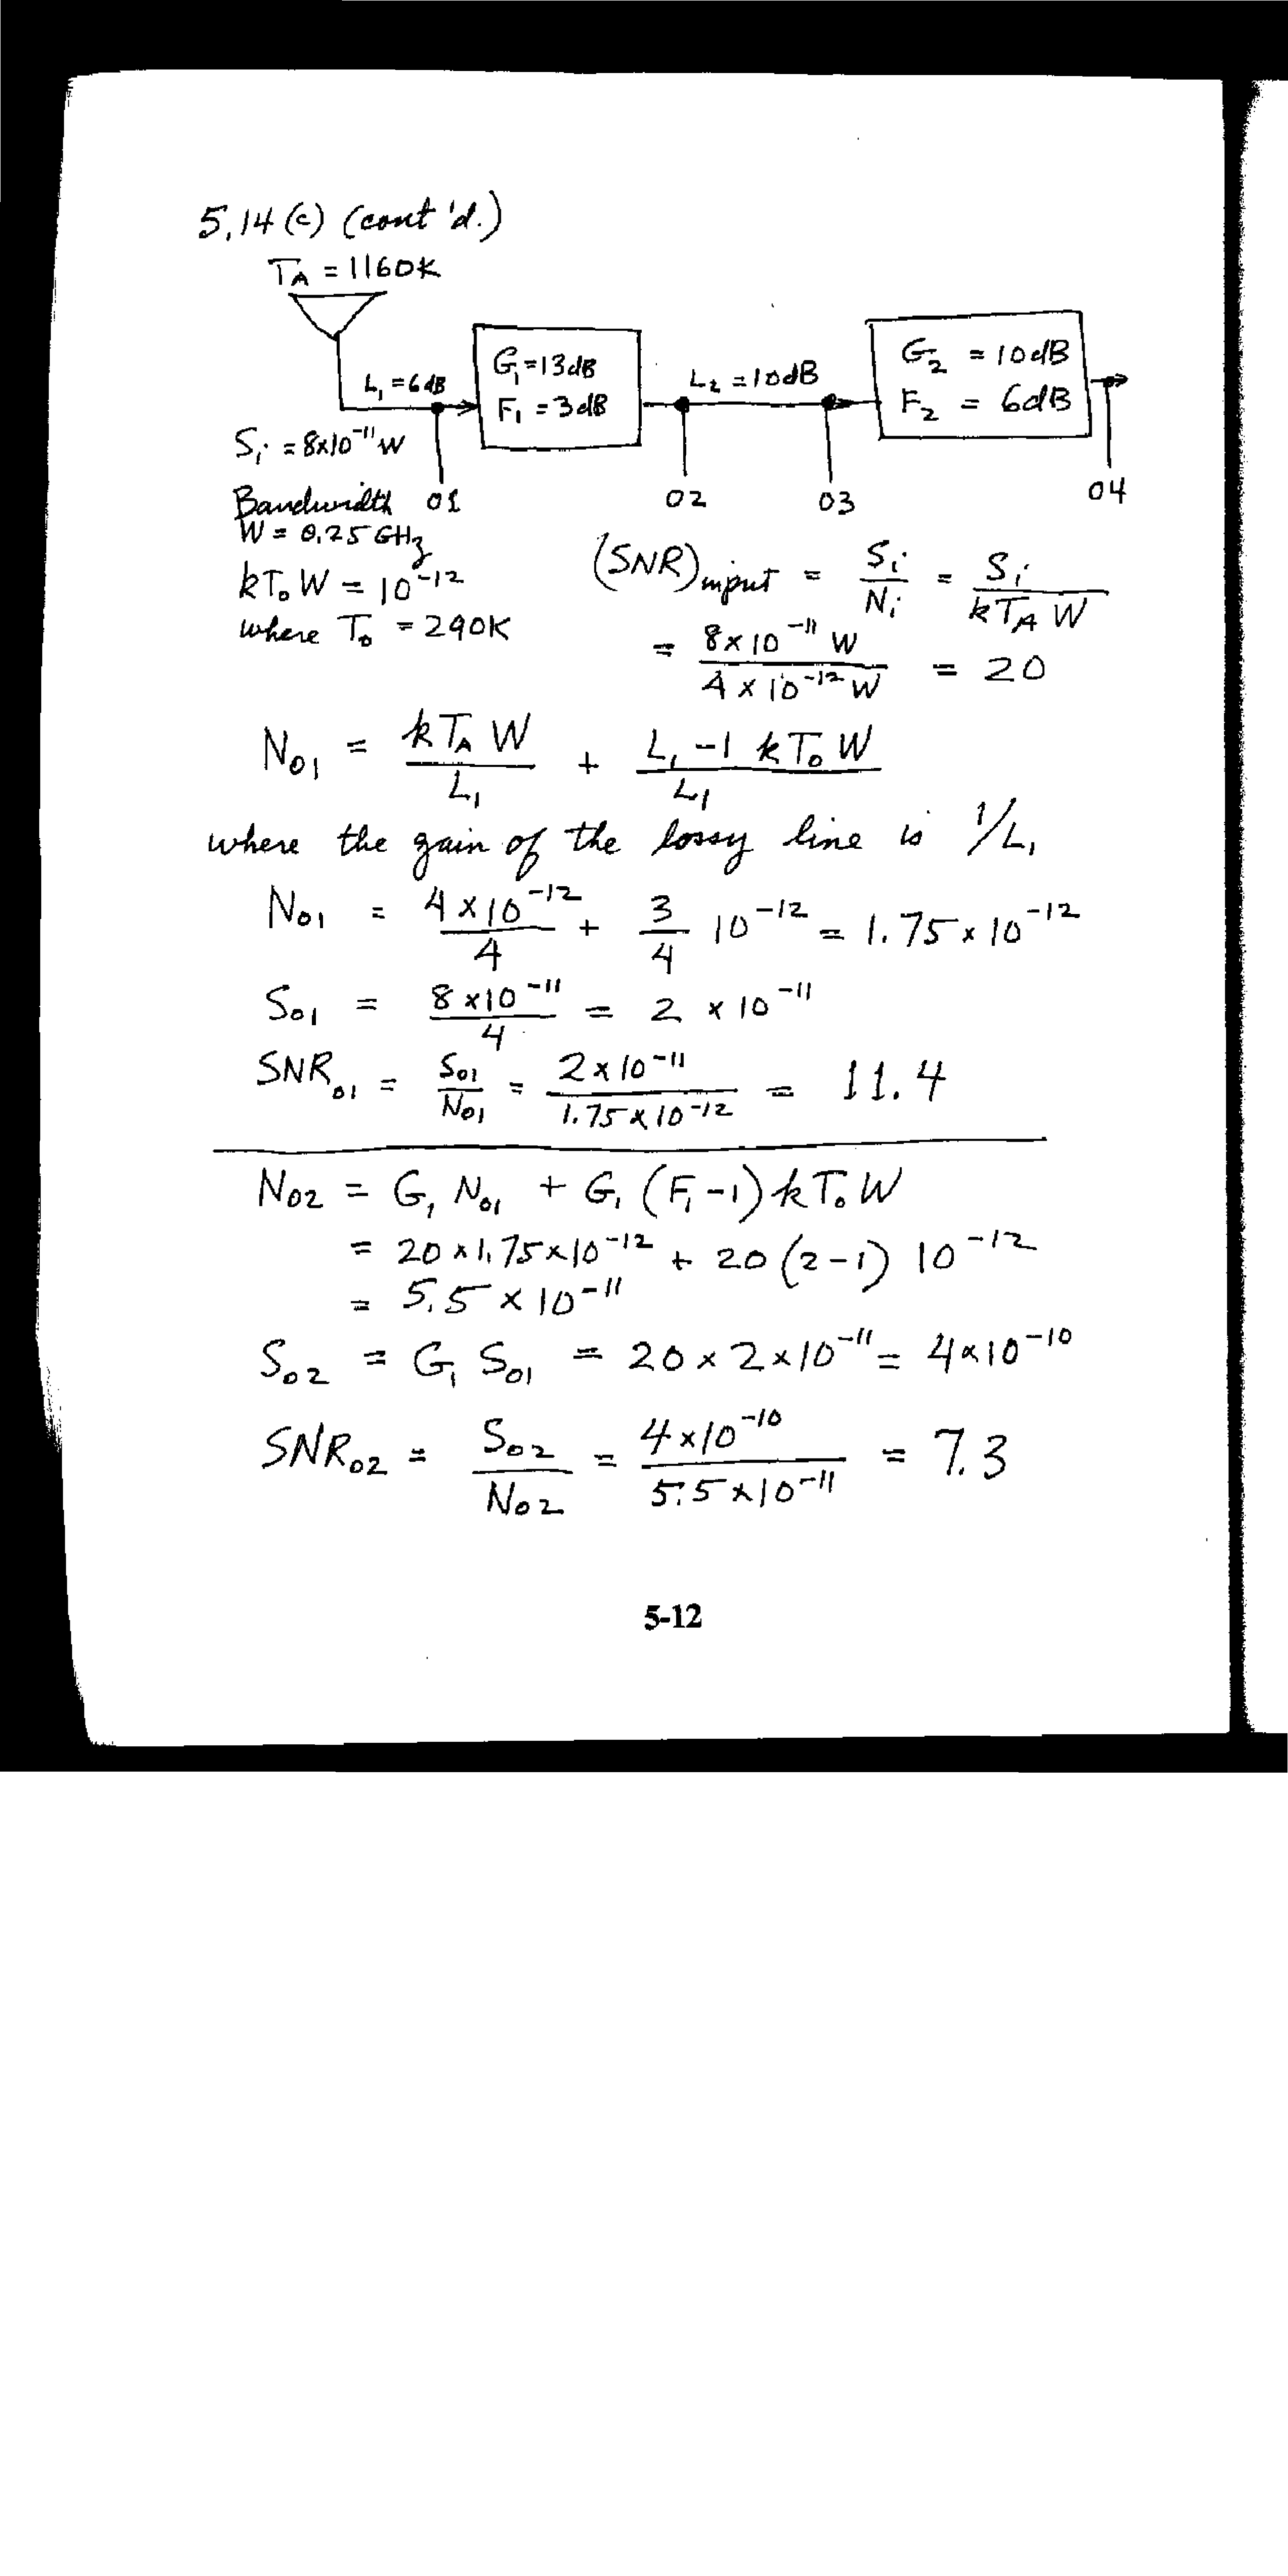 5.14 (c) (cont'd.)
T_A = 1160K
L₁ = 6 dB
G₁ = 13 dB
F₁ = 3 dB
L₂ = 10 dB
G₂ = 10 dB
F₂ = 6 dB
S_i = 8×10⁻¹¹ W
01
02
03
04
Bandwidth
W = 0.25 GHz
kT₀W = 10⁻¹²
where T₀ = 290K
(SNR)input = S_i / N_i = S_i / kT_A W
= 8×10⁻¹¹ W / 4×10⁻¹² W = 20
N₀₁ = kT_A W / L₁ + L₁ - 1 kT₀ W / L₁
where the gain of the lossy line is 1/L₁
N₀₁ = 4×10⁻¹² / 4 + 3/4 10⁻¹² = 1.75×10⁻¹²
S₀₁ = 8×10⁻¹¹ / 4 = 2×10⁻¹¹
SNR₀₁ = S₀₁ / N₀₁ = 2×10⁻¹¹ / 1.75×10⁻¹² = 11.4
N₀₂ = G₁ N₀₁ + G₁ (F₁ - 1) kT₀W
= 20×1.75×10⁻¹² + 20 (2-1) 10⁻¹²
= 5.5×10⁻¹¹
S₀₂ = G₁ S₀₁ = 20×2×10⁻¹¹ = 4×10⁻¹⁰
SNR₀₂ = S₀₂ / N₀₂ = 4×10⁻¹⁰ / 5.5×10⁻¹¹ = 7.3
5-12